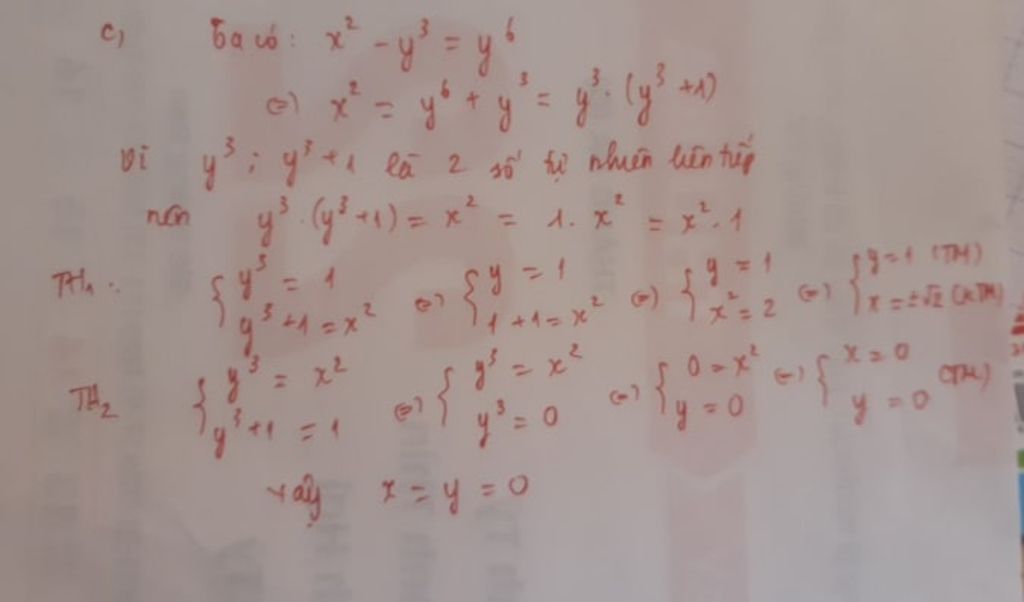 c, Ta có: x² - y³ = y⁶
(=) x² = y⁶ + y³ = y³. (y³ +1)
Vì y³ ; y³ +1 là 2 số tự nhiên liên tiếp
nên y³ . (y³ +1) = x² = 1. x² = x² . 1
TH₁ . { y³ = 1 ; y³ +1 = x² (=) { y = 1 ; 1 +1 = x² (=) { y = 1 ; x² = 2 (=) { y = 1 (TM) ; x = ±√2 (KTM)
TH₂ { y³ = x² ; y³ +1 = 1 (=) { y³ = x² ; y³ = 0 (=) { 0 = x² ; y = 0 (=) { x = 0 ; y = 0 (TM)
Vậy x = y = 0